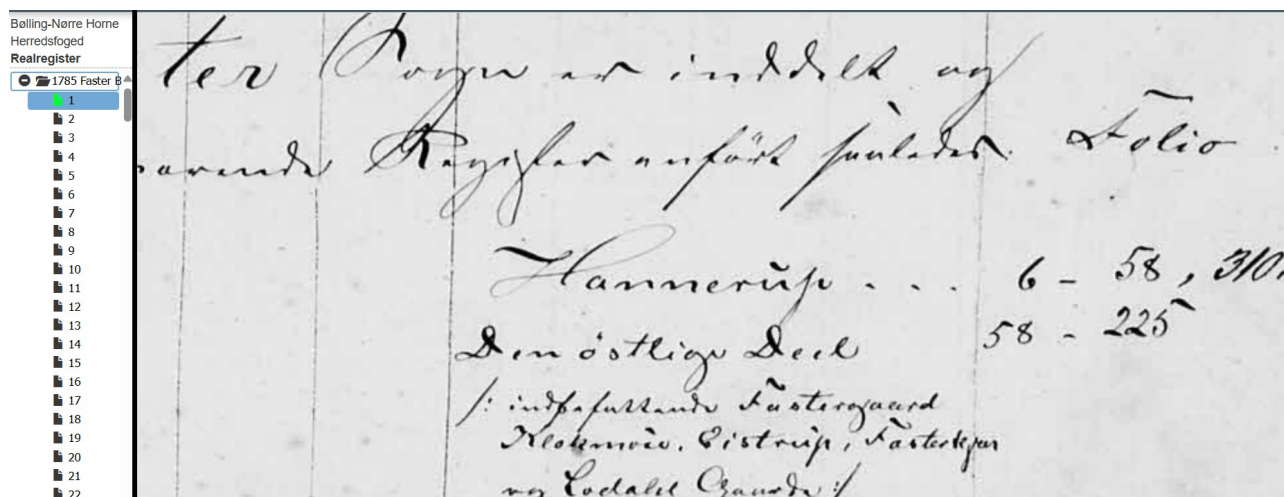 Bølling-Nørre Horne
Herredsfoged
Realregister
1785 Faster B
1
2
3
4
5
6
7
8
9
10
11
12
13
14
15
16
17
18
19
20
21
22
ter Sogn er inddelt og
varende Register anført saaledes. Folio
Hannerup . . . 6 - 58, 310.
Den östlige Deel 58 - 225
/: indbefattende Fastergaard
Klokmose, Eistrup, Fasterkjær
og Lodahl Gaarde :/